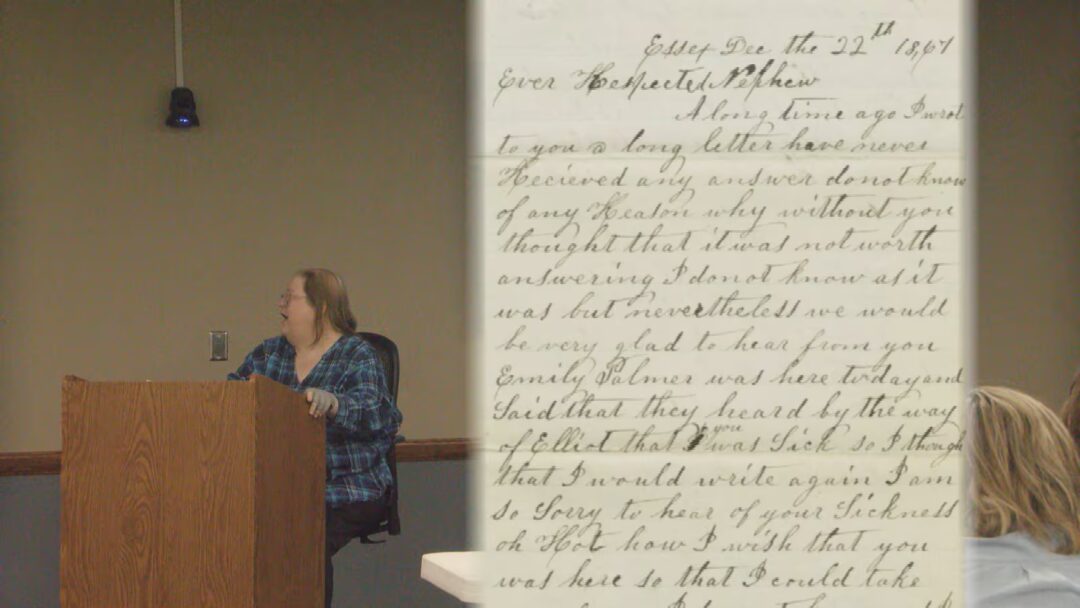 Essex Dec the 22th 1861
Ever Respected Nephew
A long time ago I wrote
to you a long letter have never
Recieved any answer donot know
of any Reason why without you
thought that it was not worth
answering I donot know as it
was but nevertheless we would
be very glad to hear from you
Emily Palmer was here today and
Said that they heard by the way
of Elliot that you was Sick so I though
that I would write again I am
so Sorry to hear of your Sickness
oh how I wish that you
was here so that I could take